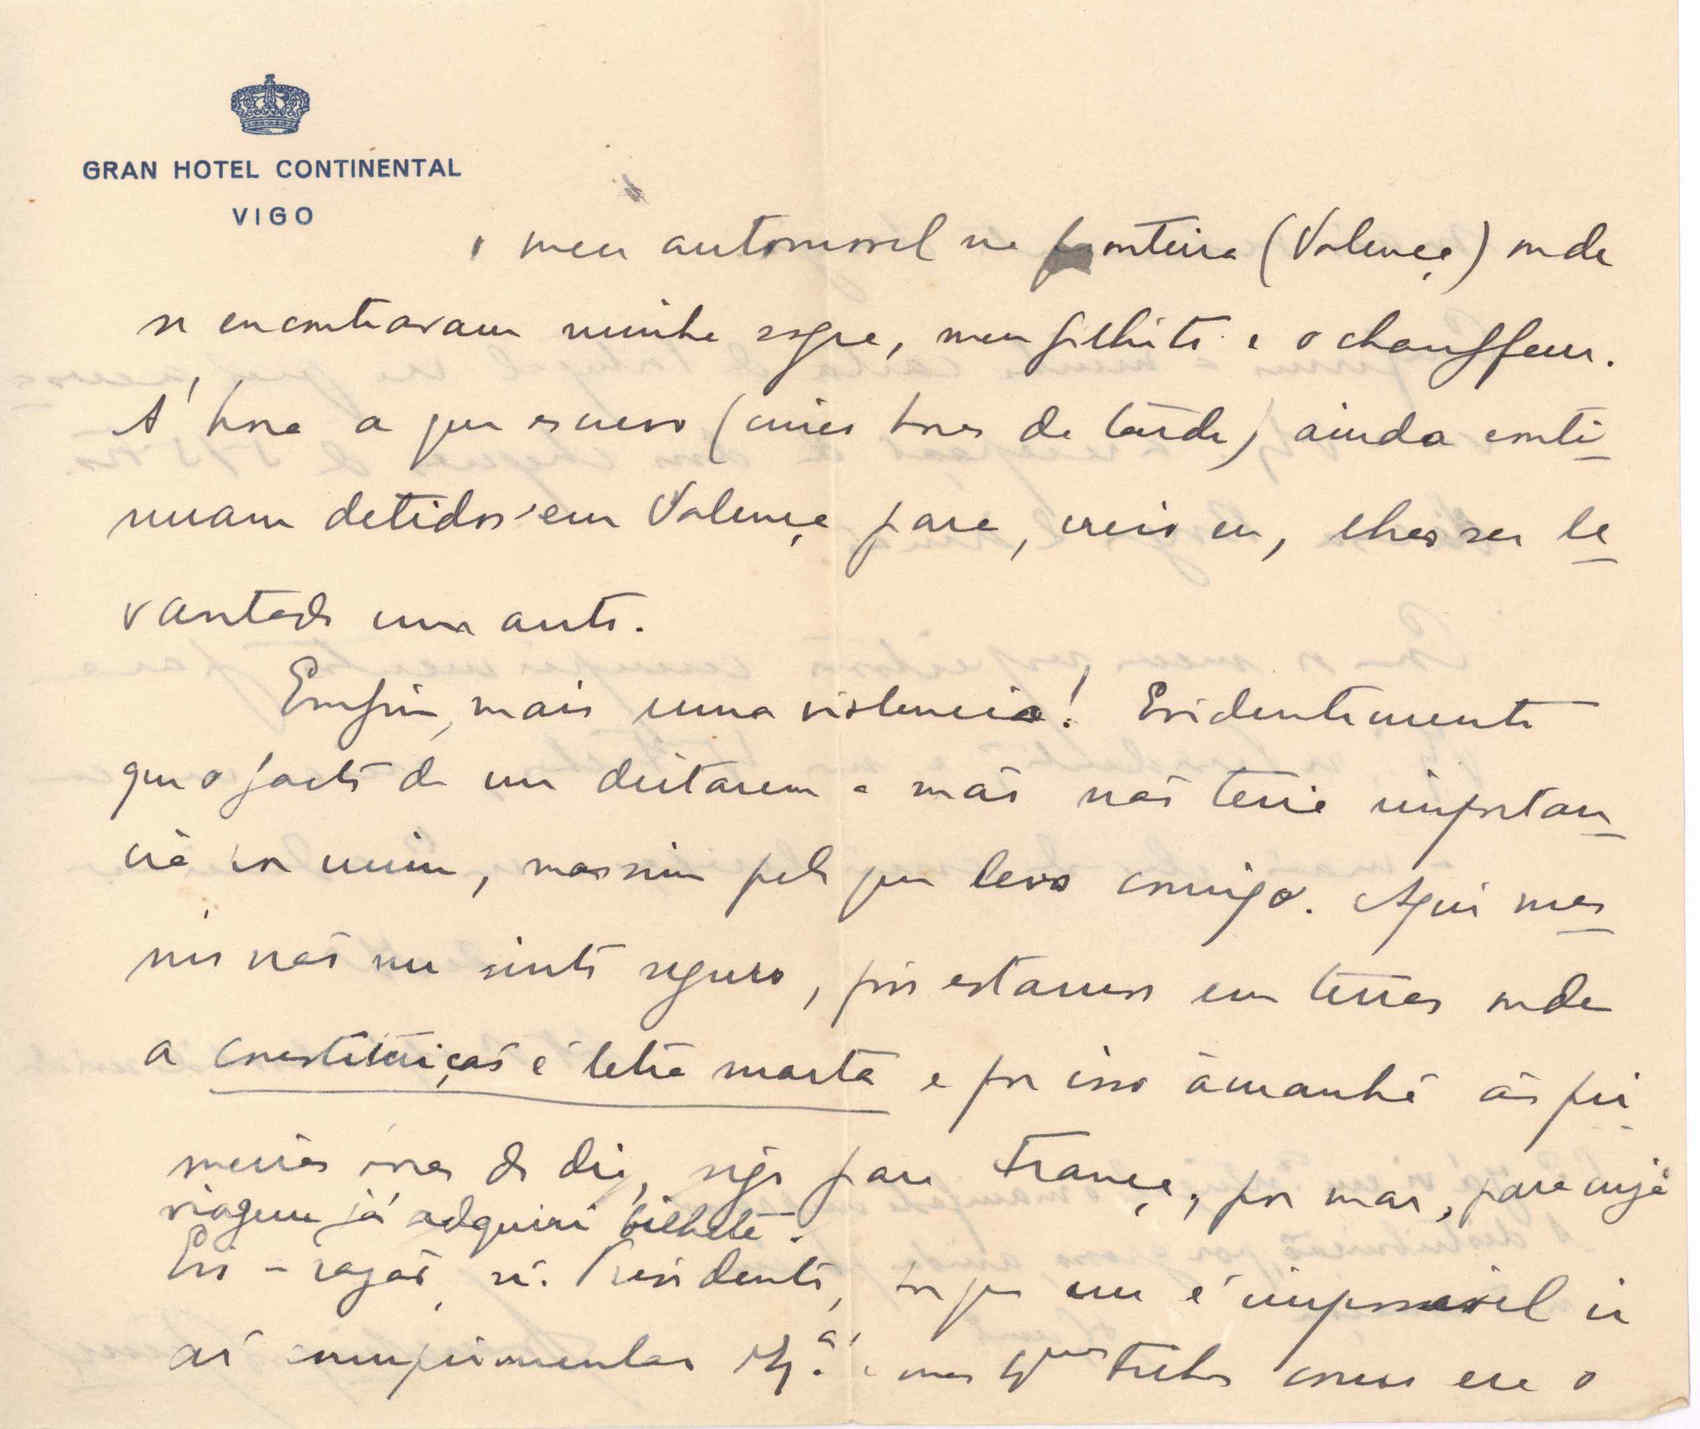 GRAN HOTEL CONTINENTAL
VIGO
o meu automovel na fronteira (Valença) onde
se encontravam minha sogra, meu filhito e o chauffeur.
A' hora a que escrevo (cinco horas da tarde) ainda conti-
nuam detidos em Valença para, creio eu, lhes ser le-
vantado um auto.
Emfim, mais uma violencia! Evidentemente
que o facto de me deitarem a mão não teria importan-
cia por mim, mas sim pelo que levo comigo. Aqui mes-
mo não me sinto seguro, pois estamos em terras onde
a constituição é letra morta e por isso ámanhã ás pri-
meiras horas do dia, sigo para França, por mar, para cuja
viagem já adquiri bilhete.
Eis a razão, sr. Presidente, porque me é impossivel ir
aí cumprimentar V. Ex.ª e mas como era o